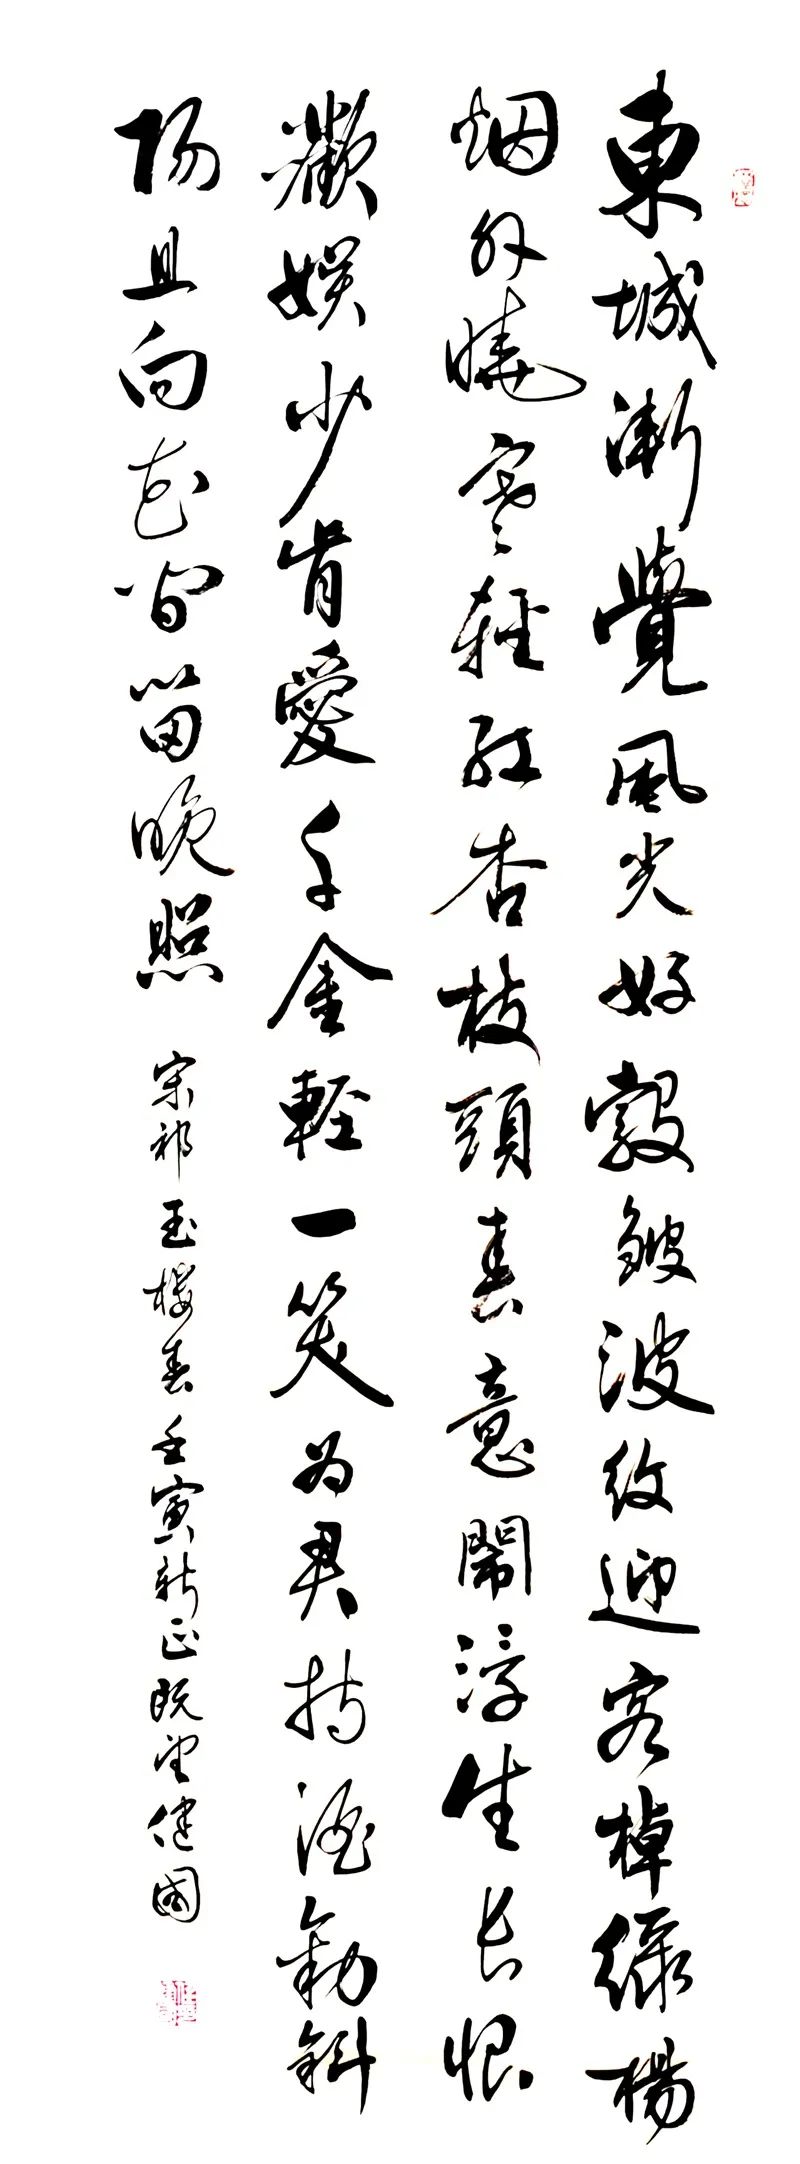 東城漸覺風光好縠皺波紋迎客棹綠楊
烟外曉寒輕紅杏枝頭春意鬧浮生长恨
歡娛少肯愛千金輕一笑为君持酒勸斜
陽且向花間留晚照 宋祁玉樓春 壬寅新正既望健國